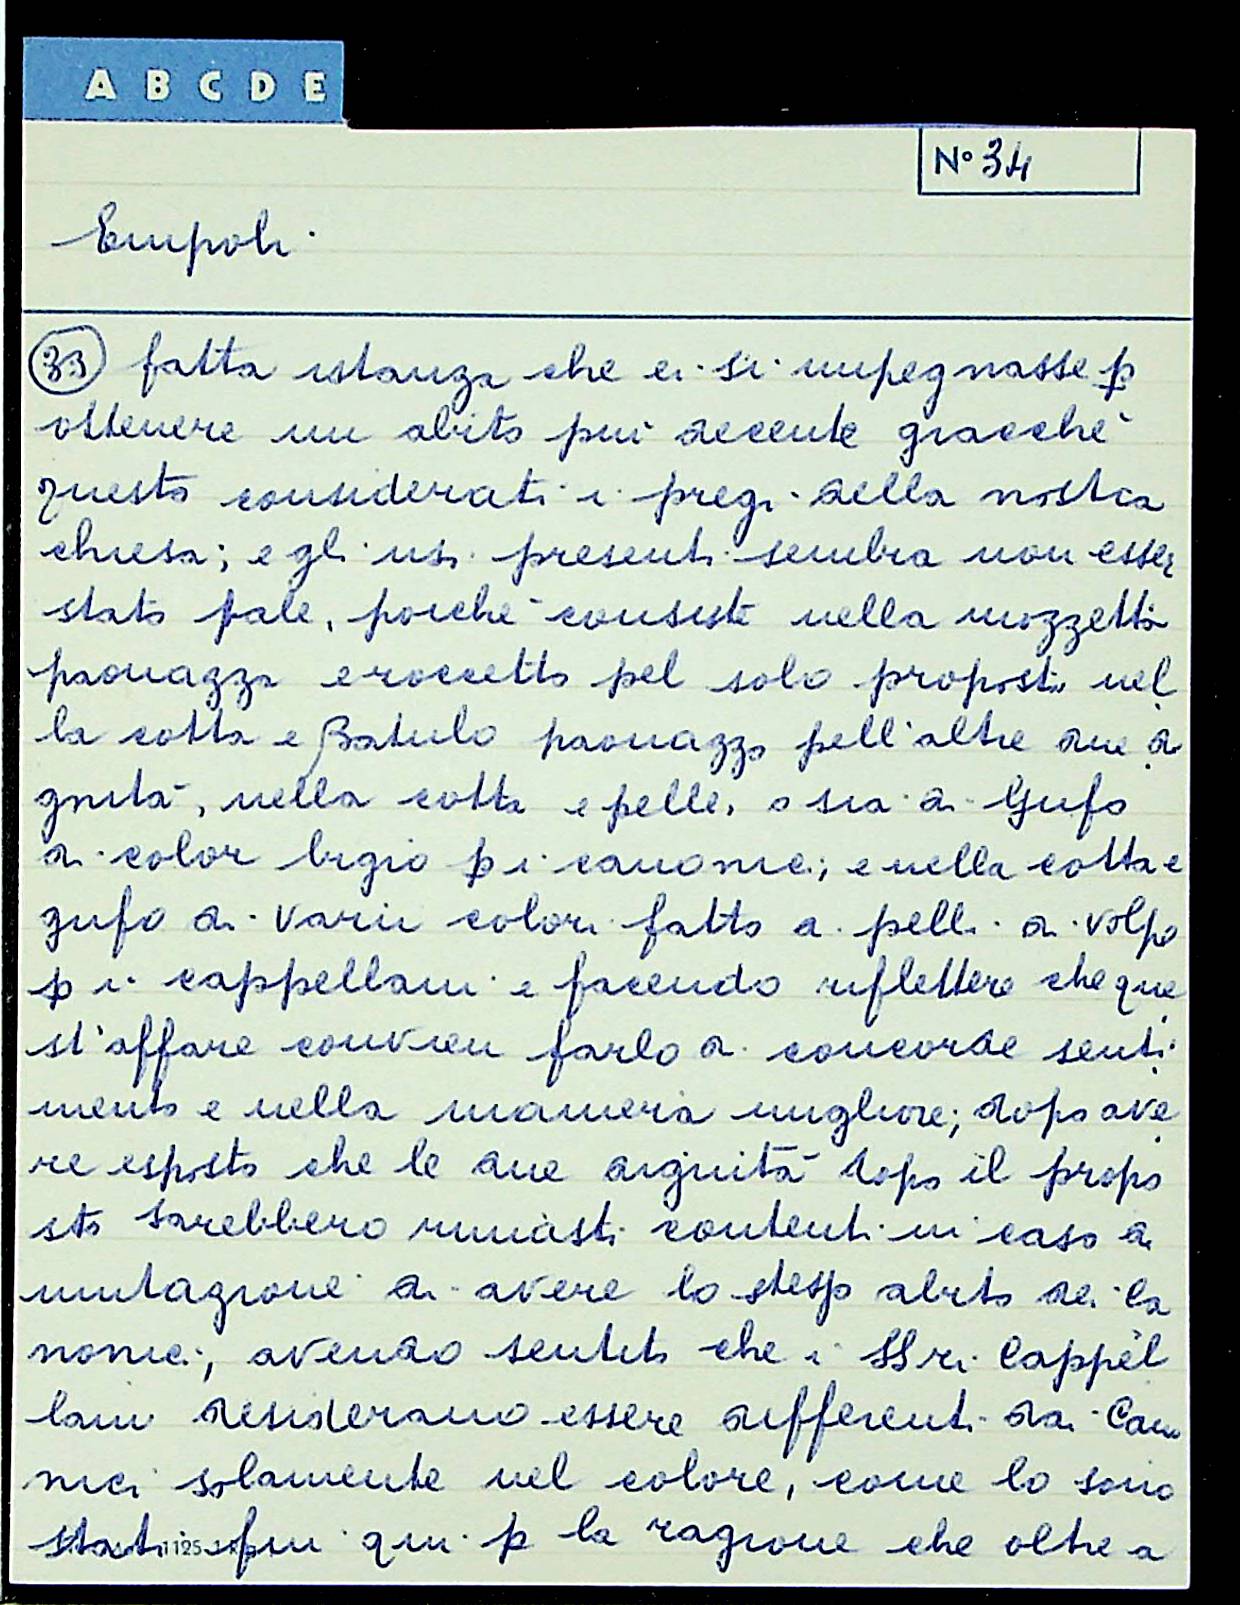 A B C D E
N° 34
Empoli.
33 fatta istanza che ei si impegnasse p
ottenere un abito più decente giacchè
questo considerati i pregi della nostra
chiesa; e gli usi presenti sembra non esser
stato tale, poichè consiste nella mozzetta
paonazza e roccetto pel solo proposto nel
la cotta e Batulo paonazzo pell'altre due di
gnità, nella cotta e pelle, o sia di Gufo
di color bigio p i canonici; e nella cotta e
gufo di varii colori fatto a pelli di volpe
p i cappellani e facendo riflettere che que
st'affare convien farlo di concorde senti
mento e nella maniera migliore; dopo ave
re esposto che le due dignità dopo il propo
sto sarebbero rimasti contenti in caso di
mutazione di avere lo stesso abito dei Ca
nonici; avendo sentito che i SSri Cappel
lani desiderano essere differenti dai Cano
nici solamente nel colore, come lo sono
stati fin qui p la ragione che oltre a
1125